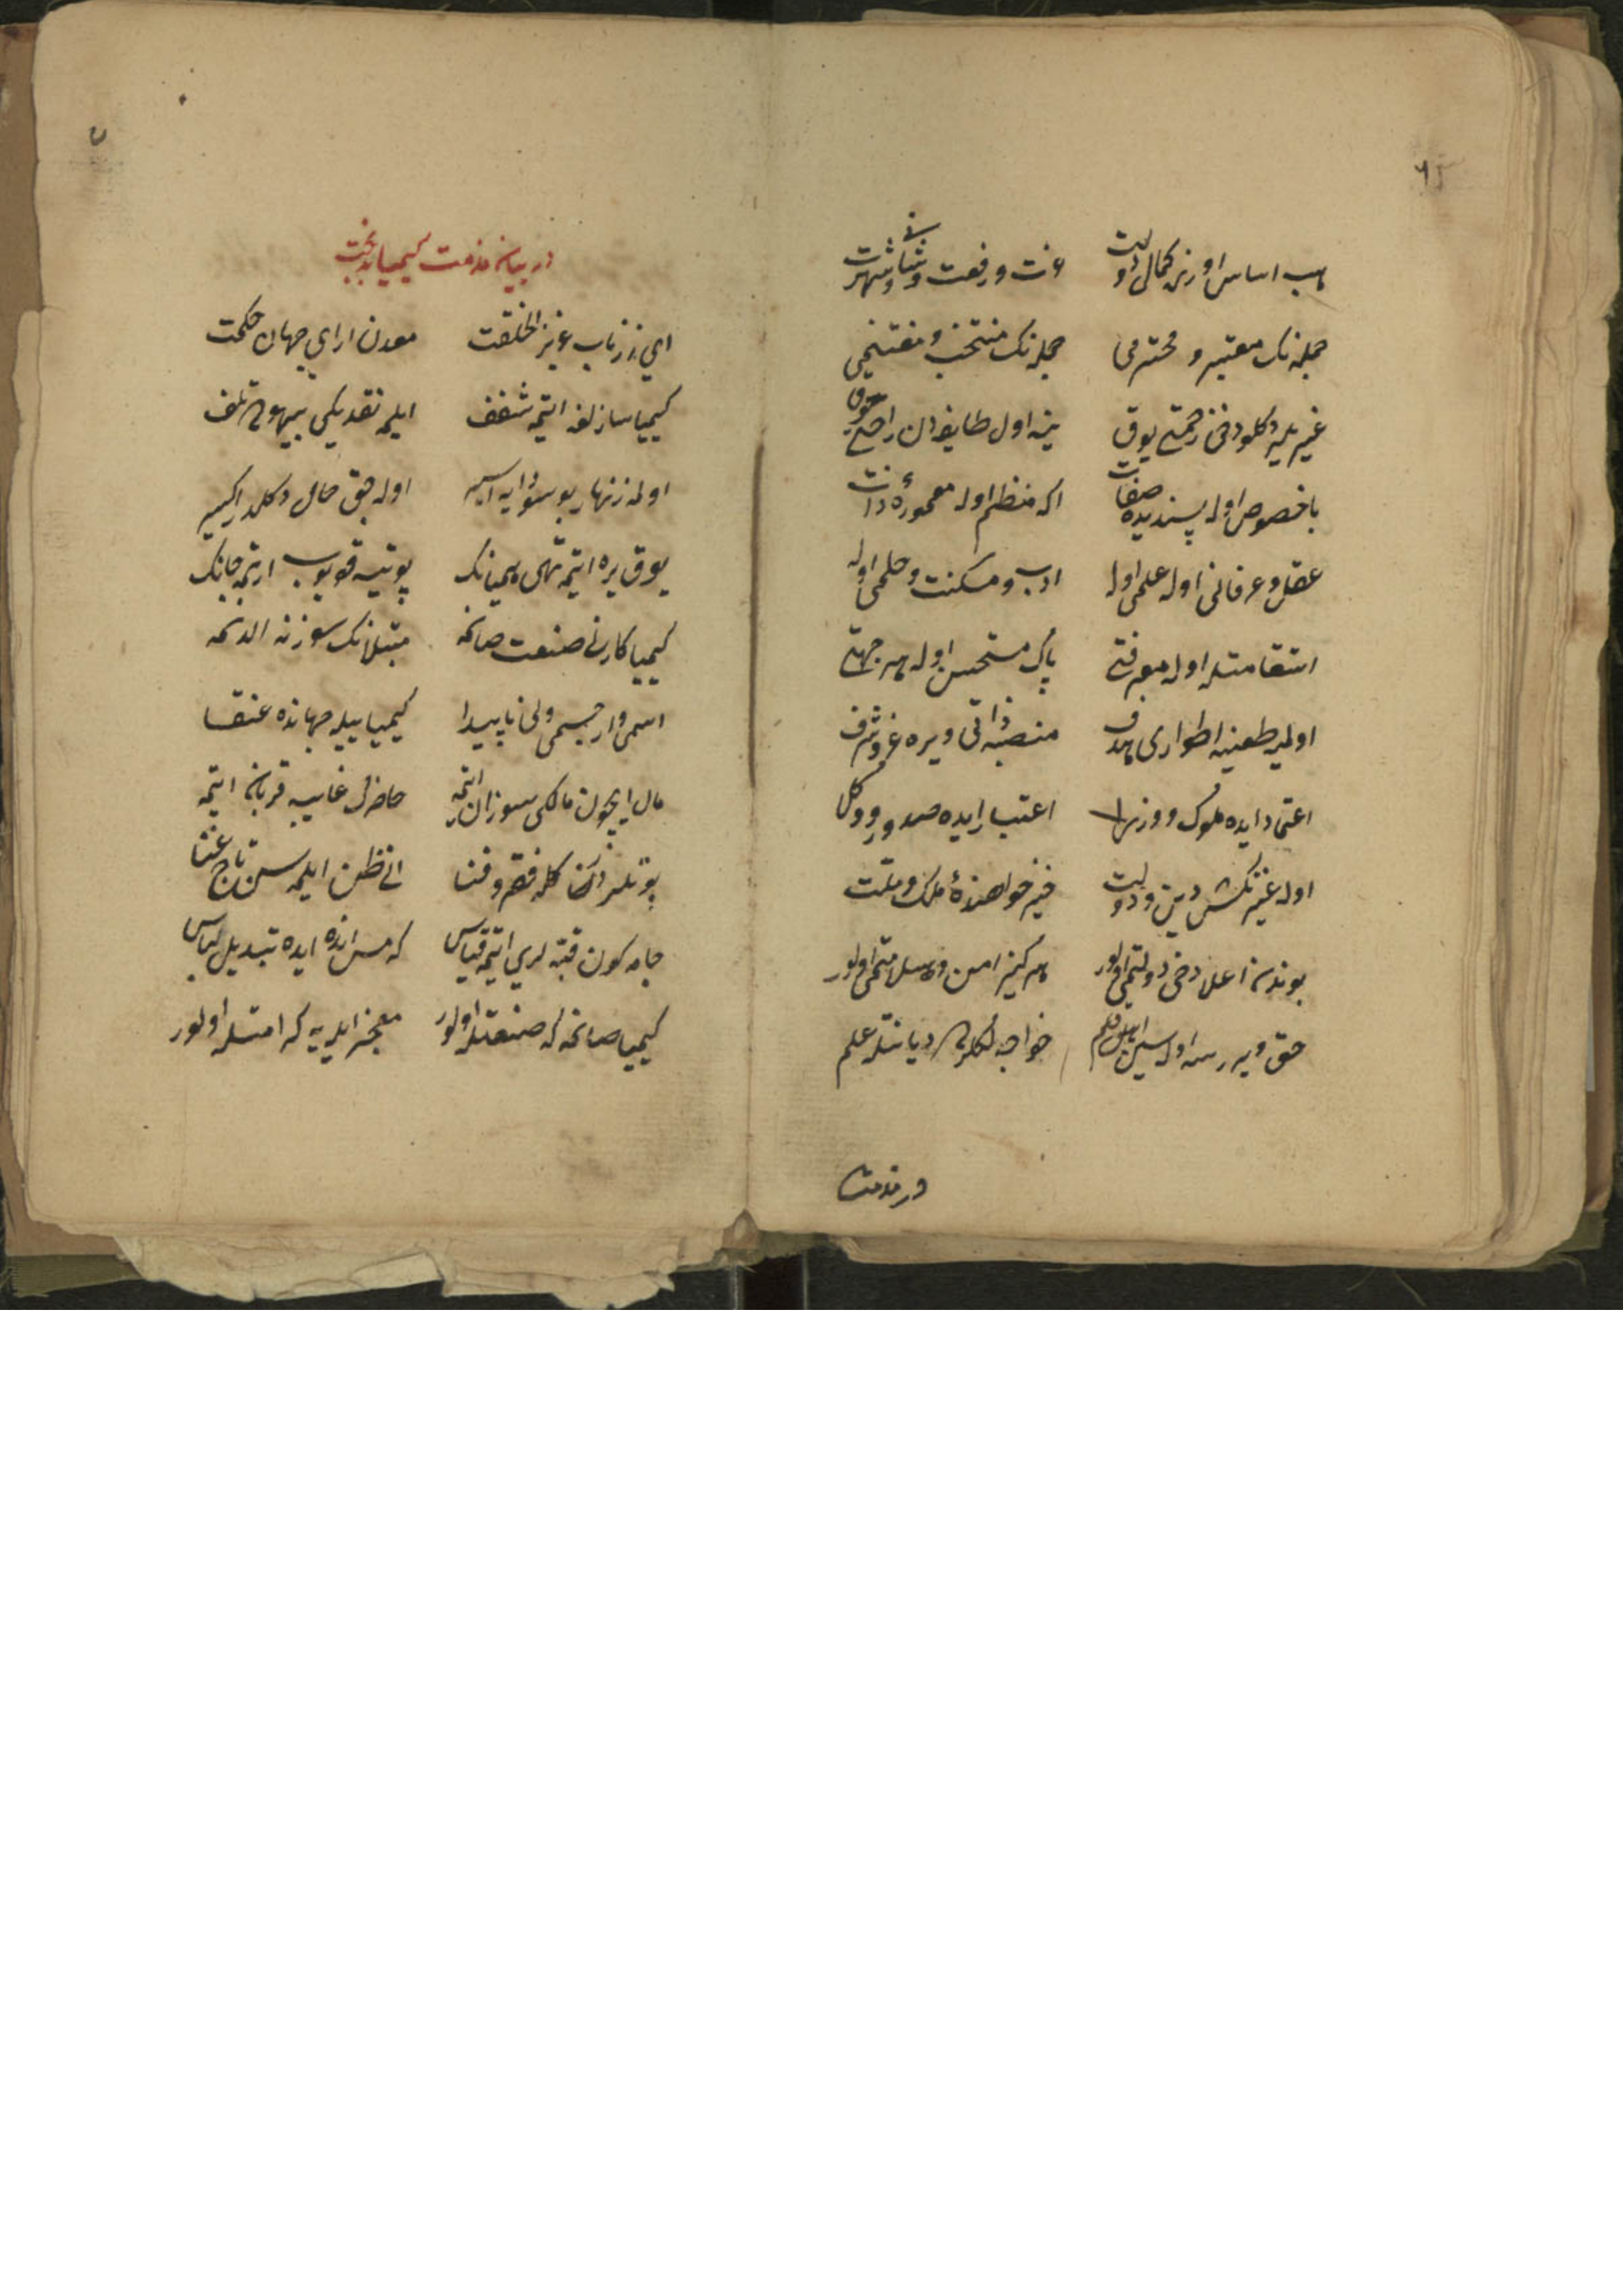 ٦٥
هب اساس اوزره كمال دولت عزت و رفعت و شان و شهرت
جمله نك معتبر و محترمی جمله نك منتخب و مغتنمی
غیر یلر دكلو دخی زحمتی یوق ینه اول طایفه دن راحتی چوق
باخصوص اوله پسندیده صفات اكه منظم اوله معمورهٔ ذات
عقل و عرفانی اوله علمی اوله ادب و مسكنت و حلمی اوله
استقامتله اوله معرفتی پاك مستحسن اوله هر جهتی
اولمیه طعنه اطواری هدف منصبه ذاتی ویره عز و شرف
اعتماد ایده ملوك و وزرا اعتبار ایده صدور و وكلا
اوله غیرتكش دین و دولت خیر خواهندهٔ ملك و ملت
بوندن اعلا دخی دولتمی اولور هر كیز امن و سلامتمی اولور
حق ویررسه اوله سین اهل قلم خواجه لكله دیانتله علم
در مذمت
در بیان مذمت كیمیا بدبخت
ای زر ناب عزیز الخلقت معدن ارای جهان حكمت
كیمیا سازلغه ایتمه شغف ایلمه نقدیكی بیهوده تلف
اولمه زنهار بو سودایه اسیر اوله جق حال دكلدر اكسیر
یوق یره ایتمه تهی همیانك پوتیه قویوب ارتمه جانك
كیمیا كارنی صنعت صانمه مبتلانك سوزنه الدنمه
اسمی وار جسمی ولی ناپیدا كیمیا ییله جهانده عنقا
مال ایچون مالكی سوزان ایتمه حاضری غایبه قربان ایتمه
پوتلردن كله فقر و فنا انی ظن ایلمه سن تاج غنا
جامه كون قبه لری ایتمه قیاس كه مس انده ایده تبدیل لباس
كیمیا صانمه كه صنعتله اولور معجز ایله یه كرامتله اولور